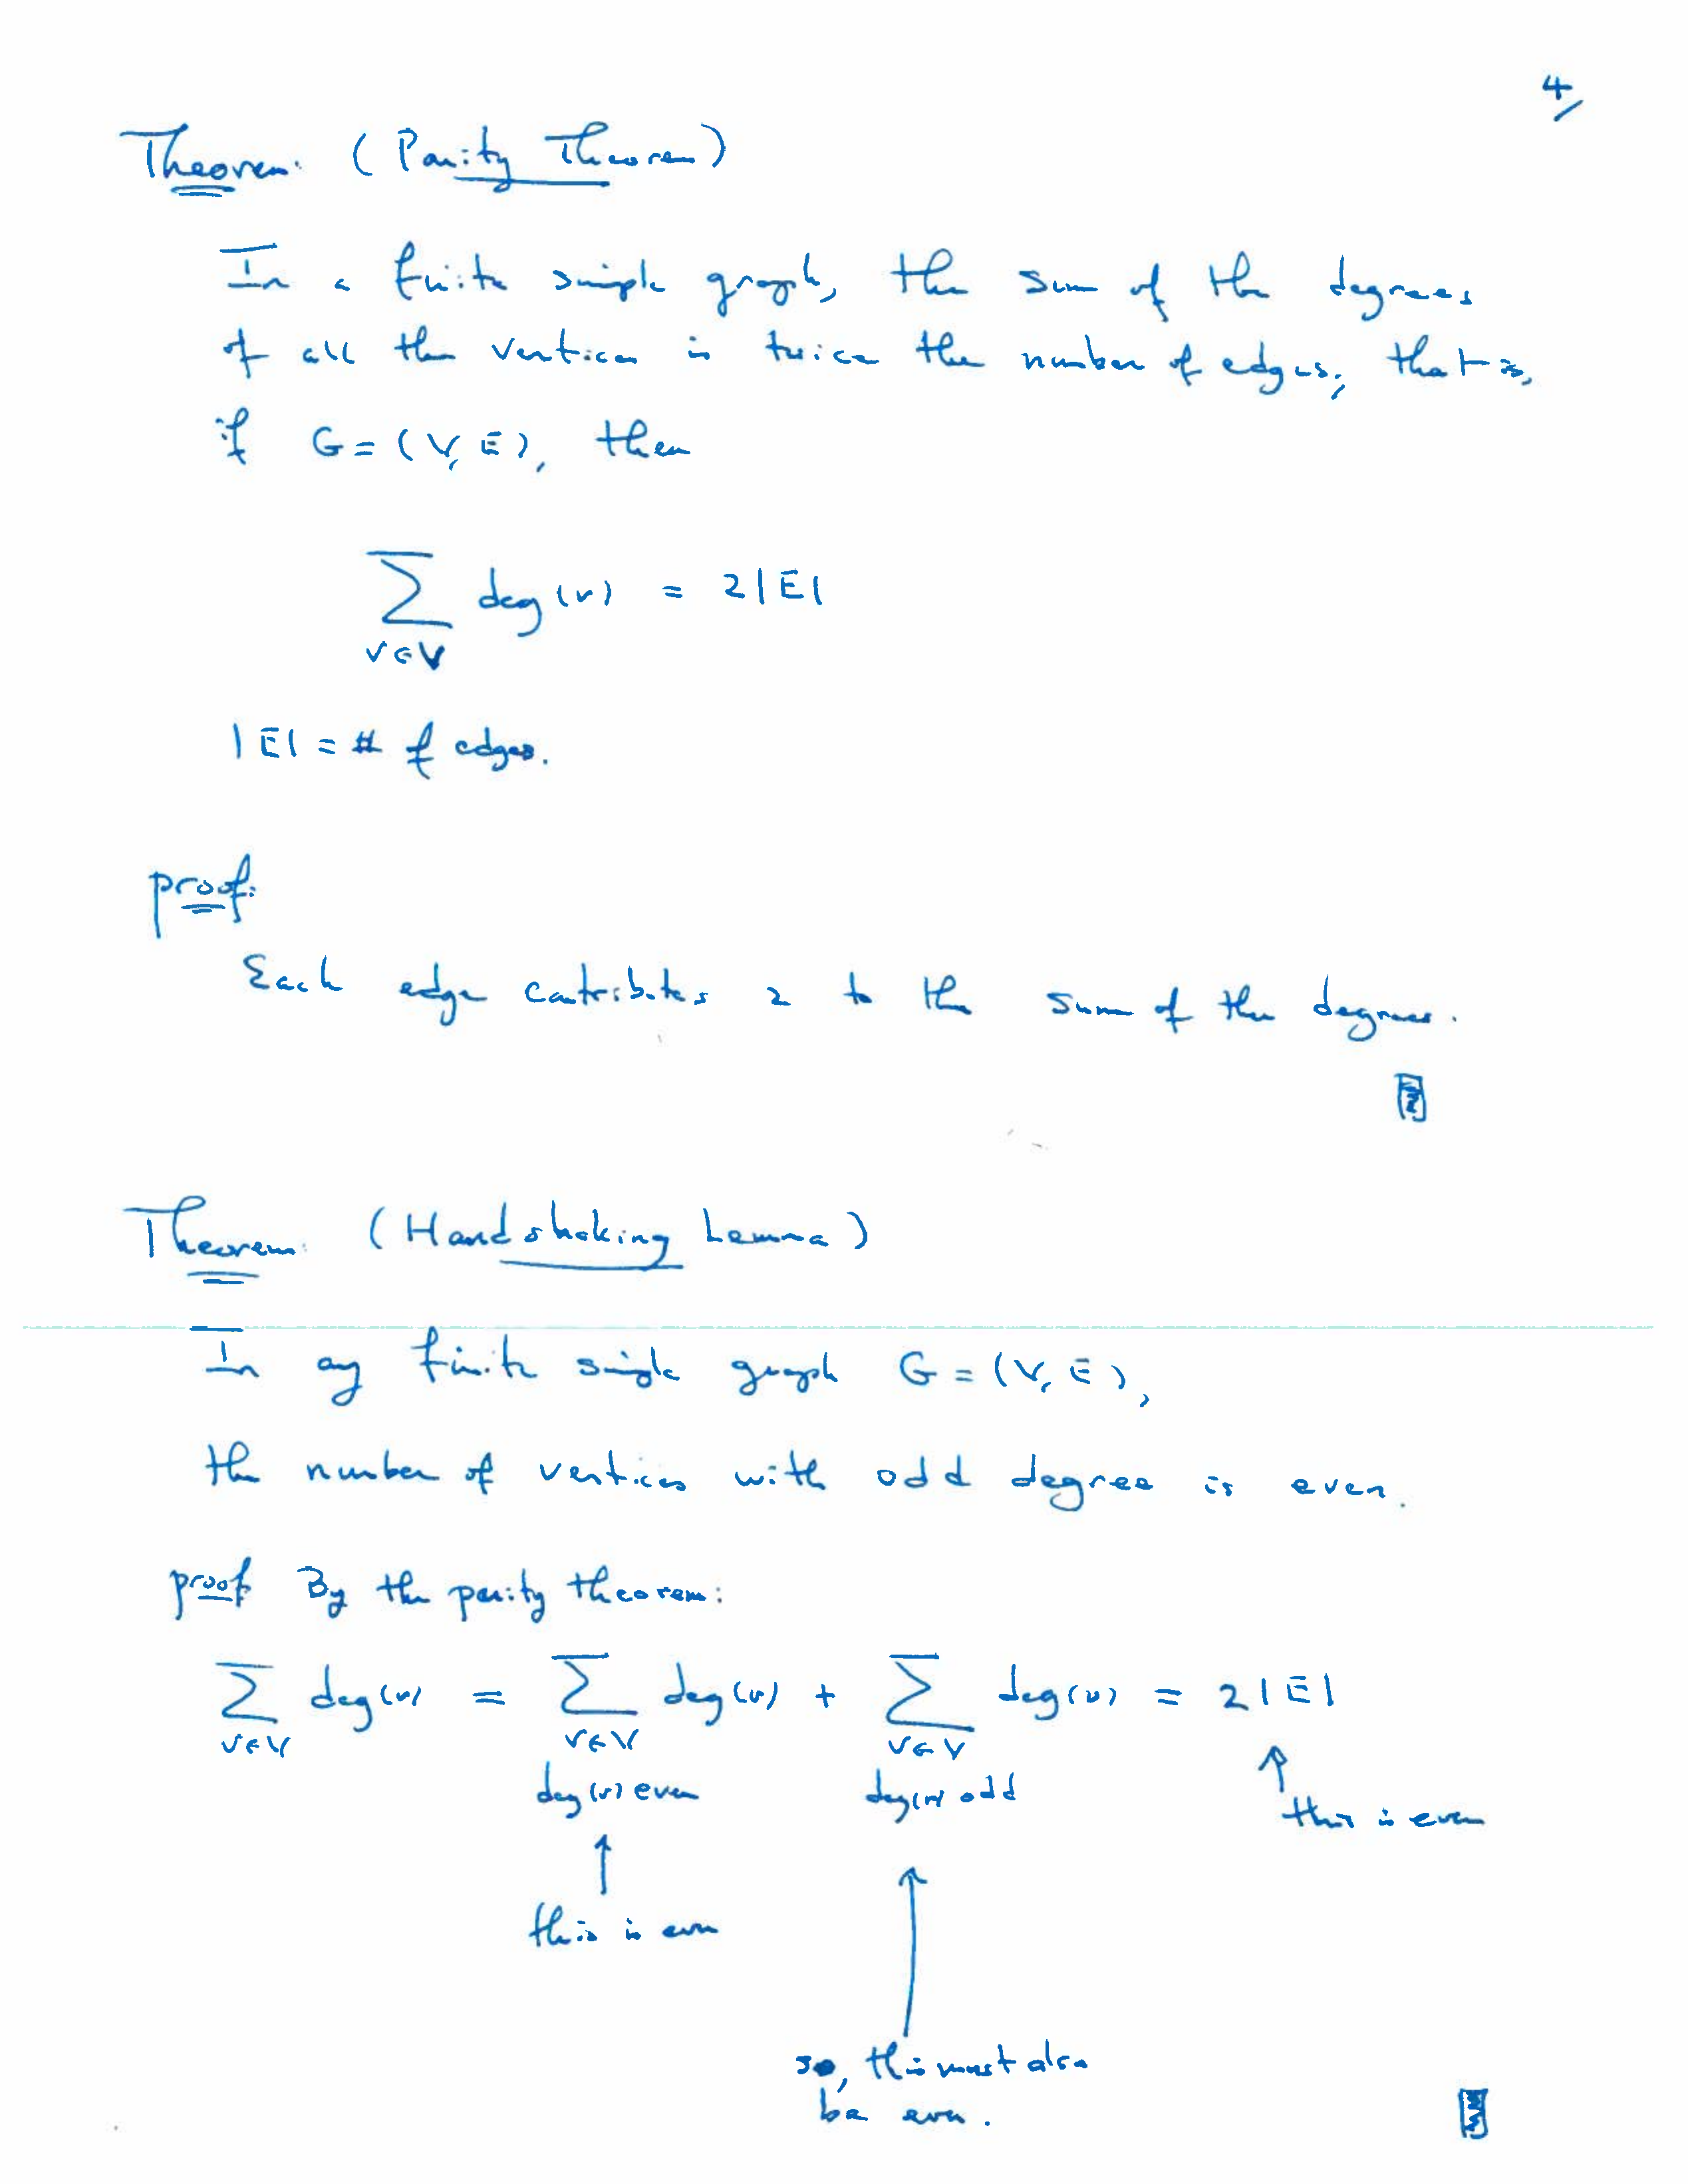 4/
Theorem: (Parity Theorem)
In a finite simple graph, the sum of the degrees
of all the vertices is twice the number of edges; that is,
if G = (V, E), then
∑ deg(v) = 2|E|
v∈V
|E| = # of edges.
proof:
Each edge contributes 2 to the sum of the degrees.
Theorem: (Handshaking Lemma)
In any finite simple graph G = (V, E),
the number of vertices with odd degree is even.
proof By the parity theorem:
∑ deg(v) = ∑ deg(v) + ∑ deg(v) = 2|E|
v∈V v∈V v∈V
deg(v) even deg(v) odd ↑ this is even
↑ ↑
this is even
so, this must also
be even.